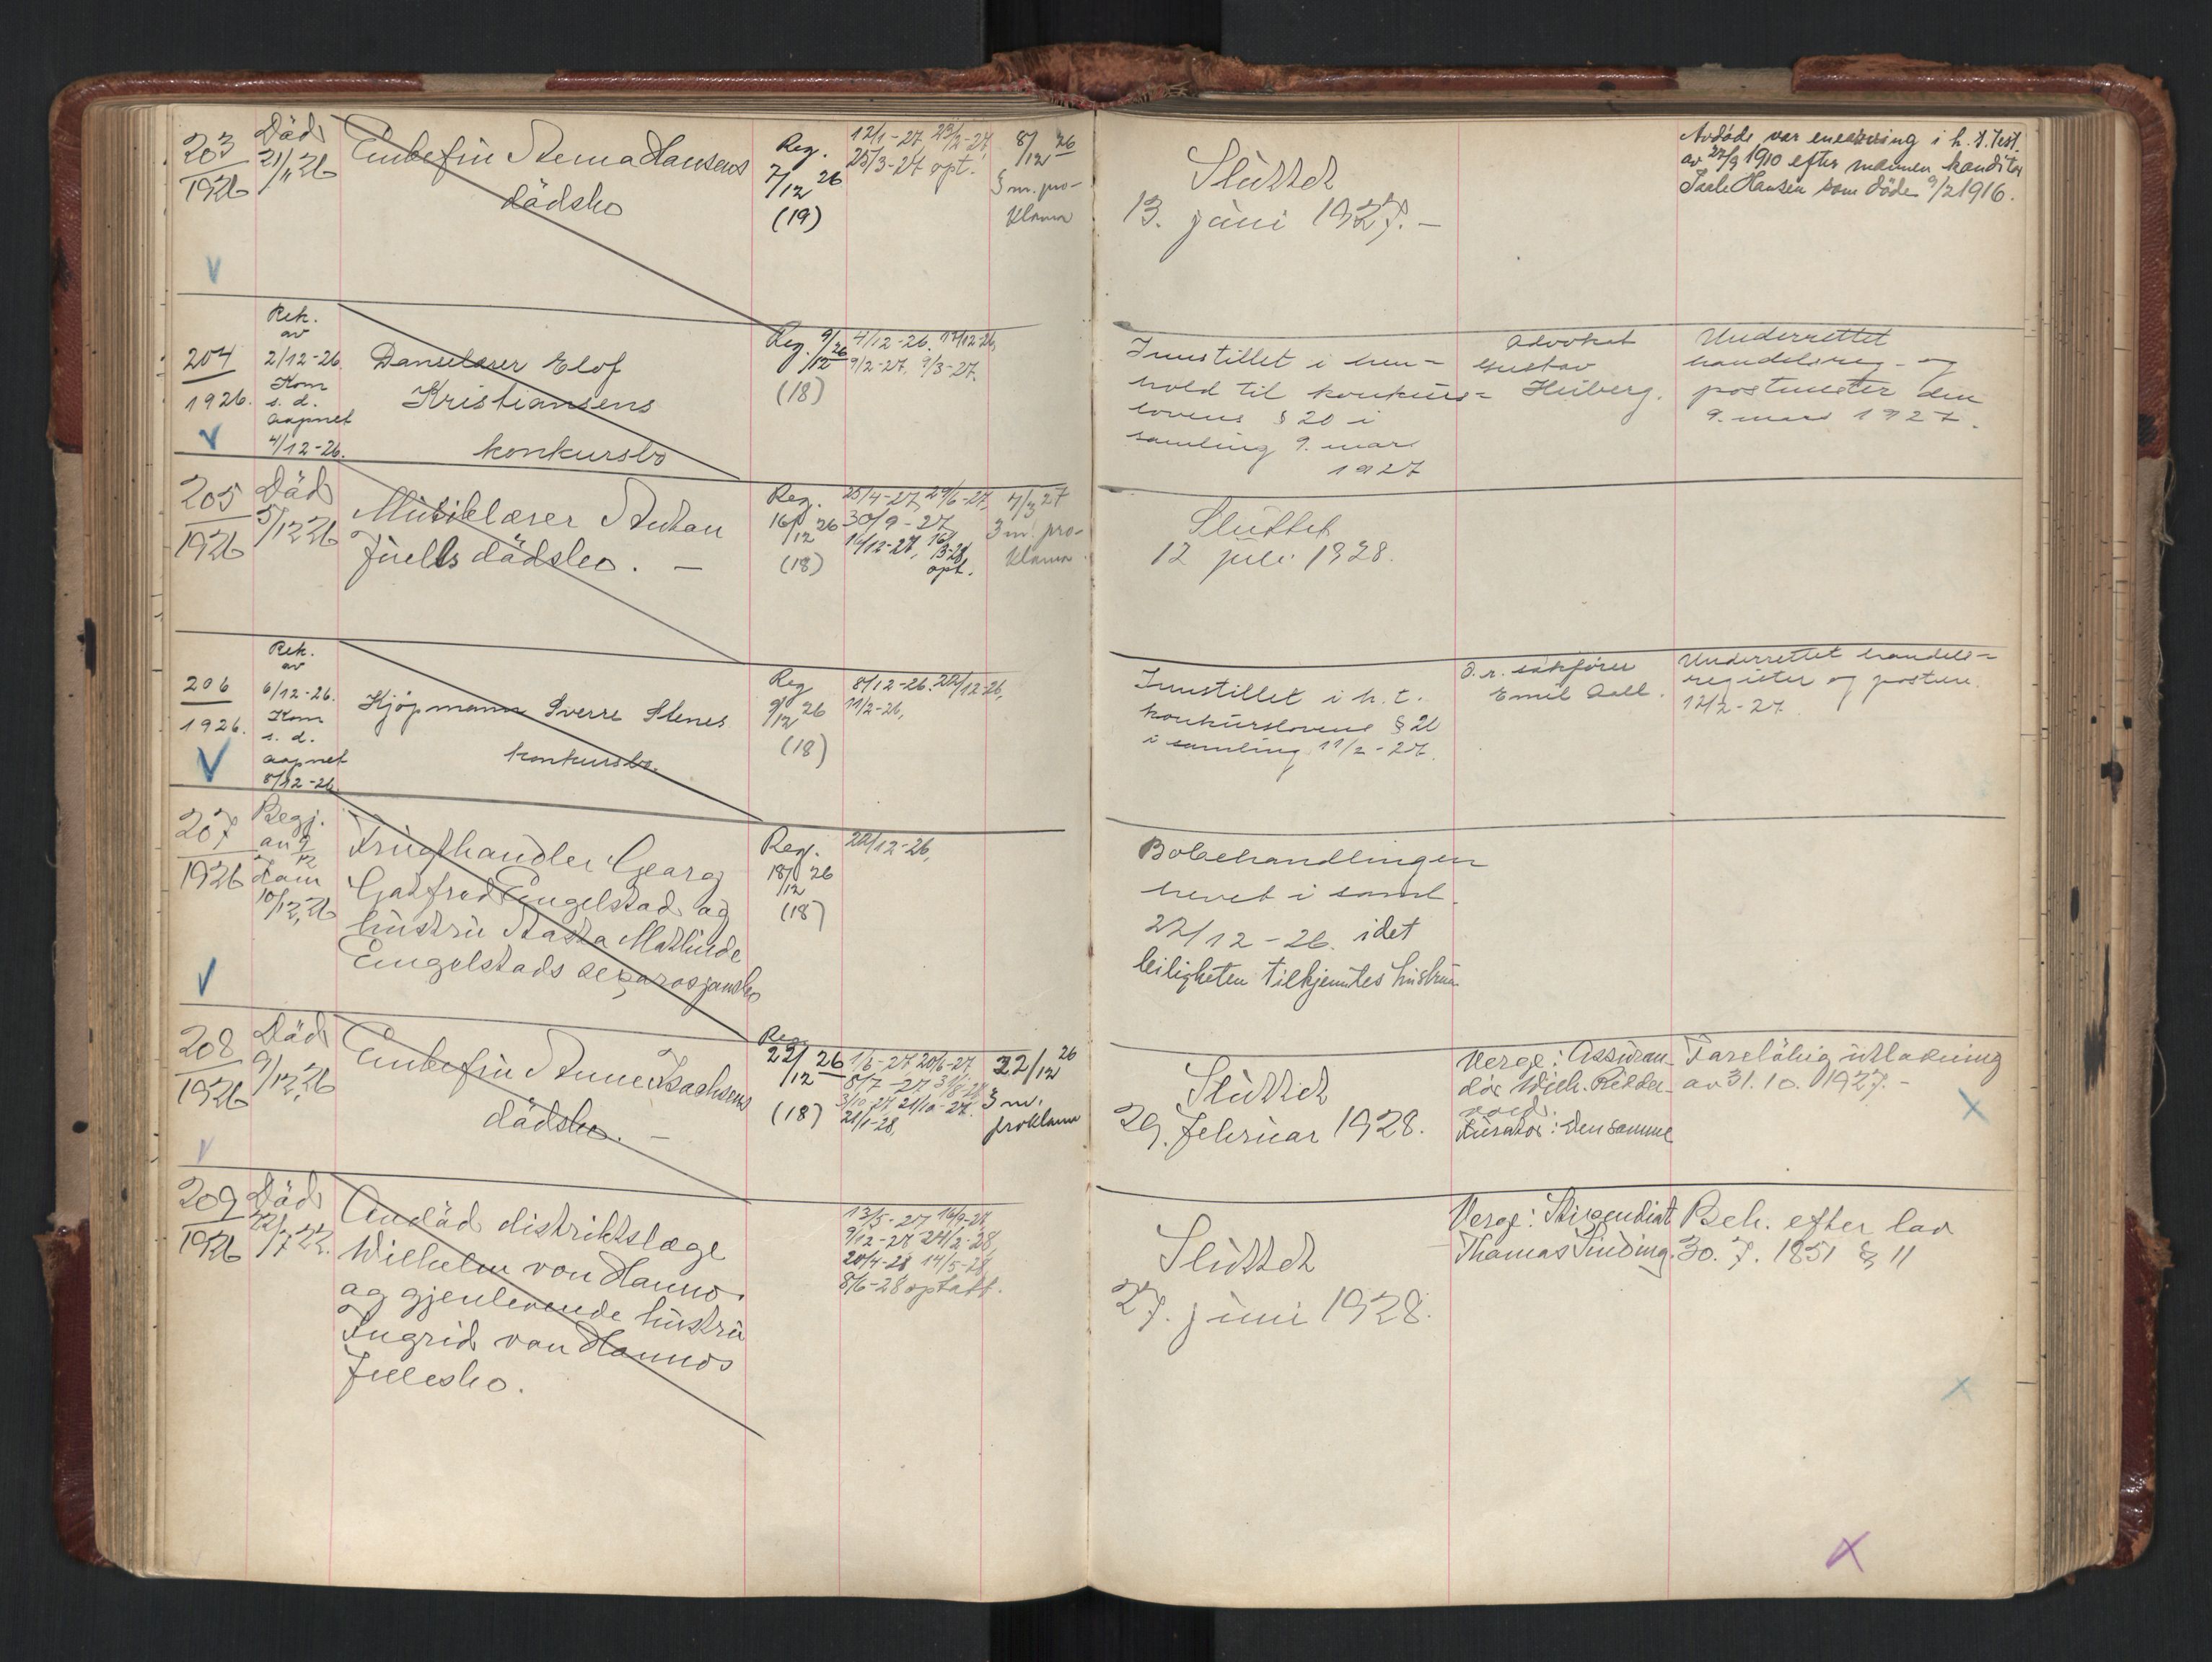 203
1926
Död
21/11 26
Enkefru Anna Hansens
dödsbo
Reg.
7/12 26
(19)
12/1-27, 23/2-27,
25/3-27 opt.
8/12 26
3 m. pro-
klama
Sluttet
13. juni 1927. —
Avdöde var enearving i h. t. test.
av 22/9 1910 efter mannen konditor
Hansen som döde 9/2 1916.
204
1926.
Rek.
av
2/12-26.
Kom
s. d.
aapnet
4/12-26.
Danselærer Elof
Kristiansens
konkursbo
Reg. 9/12 26
(18)
4/12-26. 17/12-26,
9/2-27, 9/3-27.
Innstillet i hen-
hold til konkurs-
lovens § 20 i
samling 9. mars
1927
Advokat
Gustav
Heiberg.
Underrettet
handelsreg. og
postmester den
9. mars 1927.
205
1926
Död
5/12 26
Musiklærer Anton
Juells dödsbo. —
Reg.
16/12 26
(18)
25/4-27, 29/6-27,
30/9-27
16/12-27,
opt.
4/3 27
3 m. pro-
klama.
Sluttet
12 juli 1928.
206
1926.
Rek.
av
6/12-26.
Kom
s. d.
aapnet
8/12-26
Kjöpmann Sverre Stenes
konkursbo.
Reg
9/12 26
(18)
8/12-26. 22/12-26,
11/2-26,
Innstillet i h. t.
konkurslovens § 20
i samling 11/2-27.
O. r. sakförer
Emil Aall.
Underrettet handels-
register og postm.
12/2-27.
207
1926
Begj.
av 9/12
Kom
10/12, 26
Frugthandler Georg
Gotfred Engelstad og
hustru Aasta Mathilde
Engelstads separasjonsbo
Reg.
18/12 26
(18)
22/12-26,
Bobehandlingen
hevet i saml.
22/12-26. idet
leiligheten tilkjenntes hustru
208
1926
Död
9/12, 26
Enkefru Anne Isachsens
dödsbo. —
Reg.
22/12 26
(18)
1/6-27, 20/6-27,
8/7-27, 31/8-27
3/10-27, 21/10-27.
21/1-28,
22/12 26
3 m.
proklama
Sluttet
29. februar 1928.
Verge: Assuran-
dör Wilh. Ridder-
vold.
Kurator: Den samme
Forelöbig utlodning
av 31. 10. 1927. —
209
1926
Död
22/7 22.
Avdöd distriktslæge
Wilhelm von Hanno
og gjenlevende hustru
Ingrid von Hannos
fellesbo.
13/5-27, 16/9-27,
9/12-27 24/2-28,
20/4-28 14/5-28,
8/6-28 optatt.
Sluttet
27. juni 1928.
Verge: Stipendiat
Thomas Sinding.
Beh. efter lov
30. 7. 1851 § 11